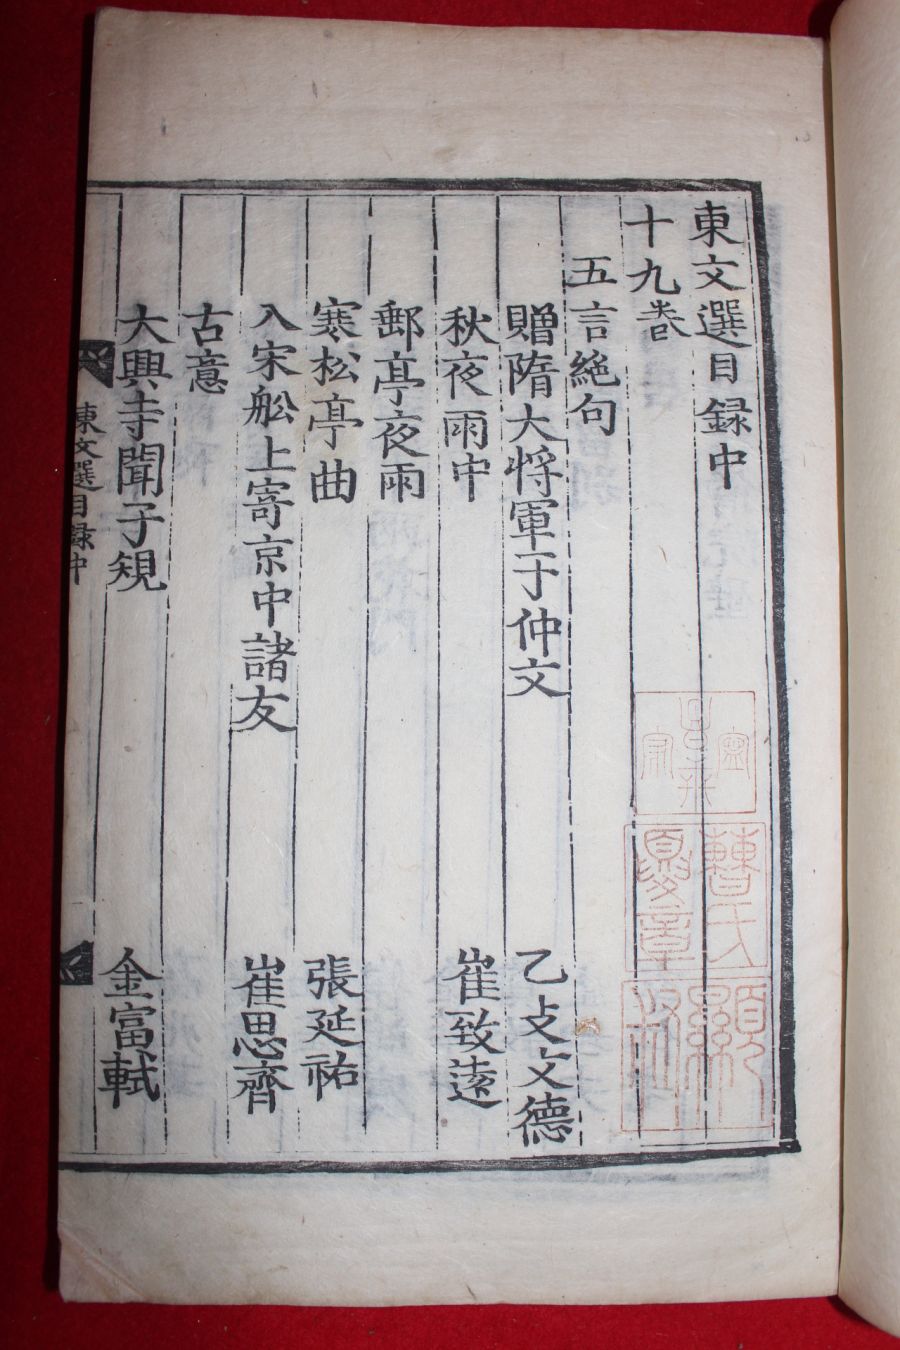 東文選目録中
十九卷
五言絶句
贈隋大將軍于仲文 乙支文德
秋夜雨中 崔致遠
郵亭夜雨
寒松亭曲 張延祐
入宋舩上寄京中諸友 崔思齊
古意
大興寺聞子規 金富軾
東文選目録中